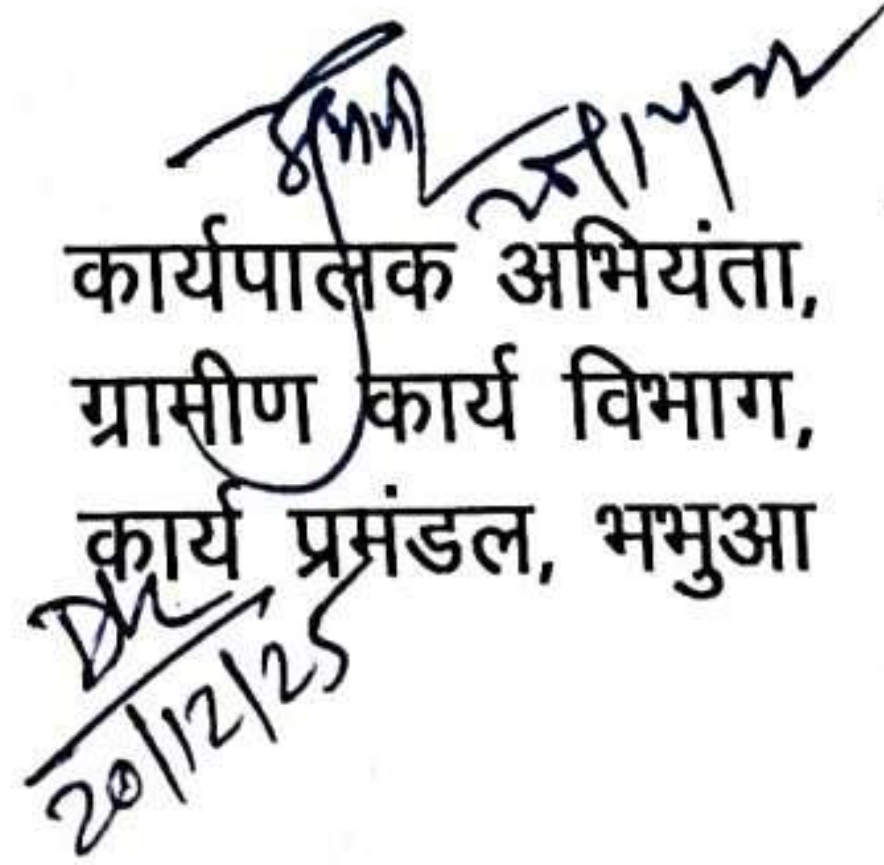 कार्यपालक अभियंता,
ग्रामीण कार्य विभाग,
कार्य प्रमंडल, भभुआ
20/12/25